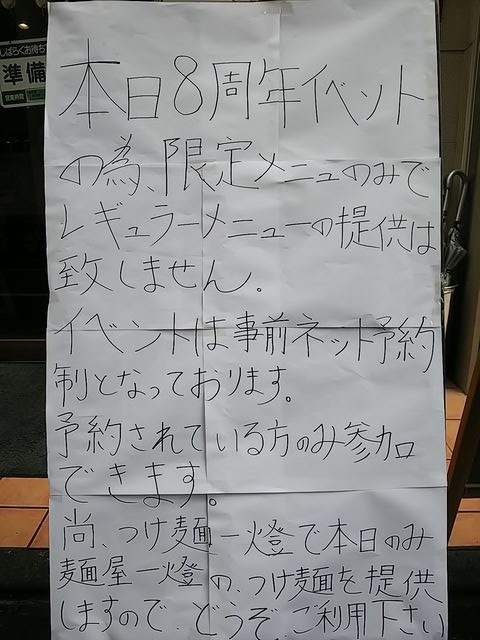 しばらくお待ち
準備
営業時間
本日8周年イベント
の為、限定メニューのみで
レギュラーメニューの提供は
致しません。
イベントは事前ネット予約
制となっております。
予約されている方のみ参加
できます。
尚、つけ麺一燈で本日のみ
麺屋一燈の、つけ麺を提供
しますので、どうぞ、ご利用下さい